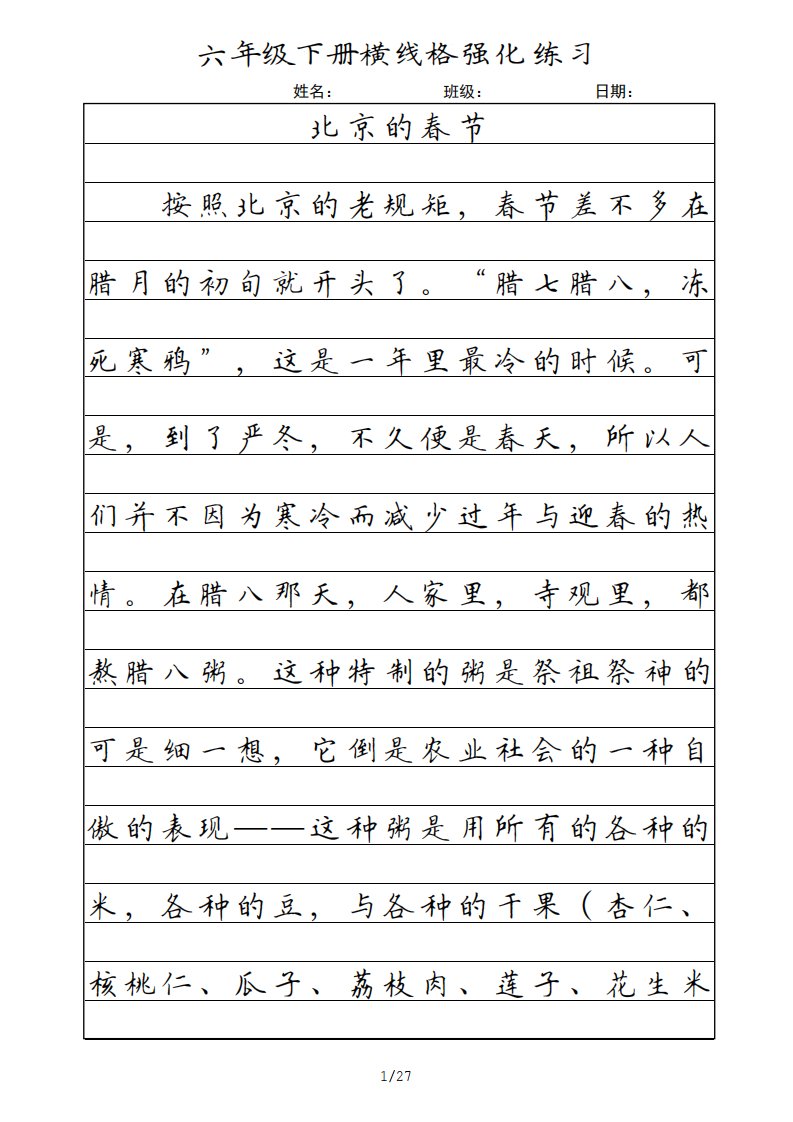 六年级下册横线格强化练习
姓名： 班级： 日期：
北京的春节
按照北京的老规矩，春节差不多在
腊月的初旬就开头了。“腊七腊八，冻
死寒鸦”，这是一年里最冷的时候。可
是，到了严冬，不久便是春天，所以人
们并不因为寒冷而减少过年与迎春的热
情。在腊八那天，人家里，寺观里，都
熬腊八粥。这种特制的粥是祭祖祭神的
可是细一想，它倒是农业社会的一种自
傲的表现——这种粥是用所有的各种的
米，各种的豆，与各种的干果（杏仁、
核桃仁、瓜子、荔枝肉、莲子、花生米
1/27